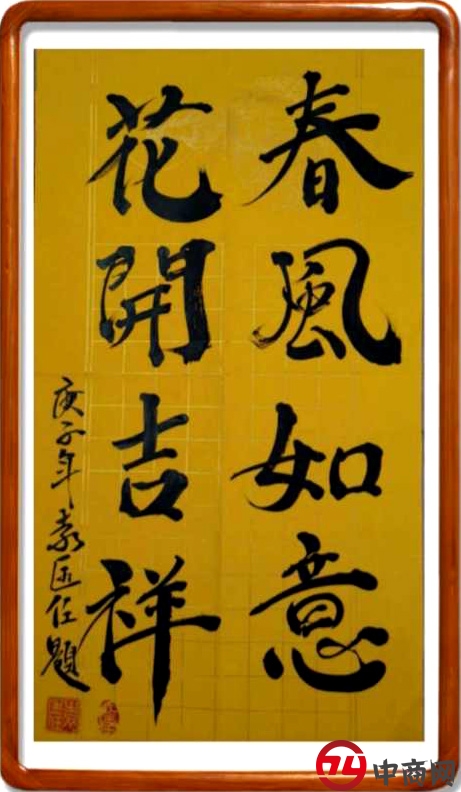 春風如意
花開吉祥
庚子年袁匡任題
中商网